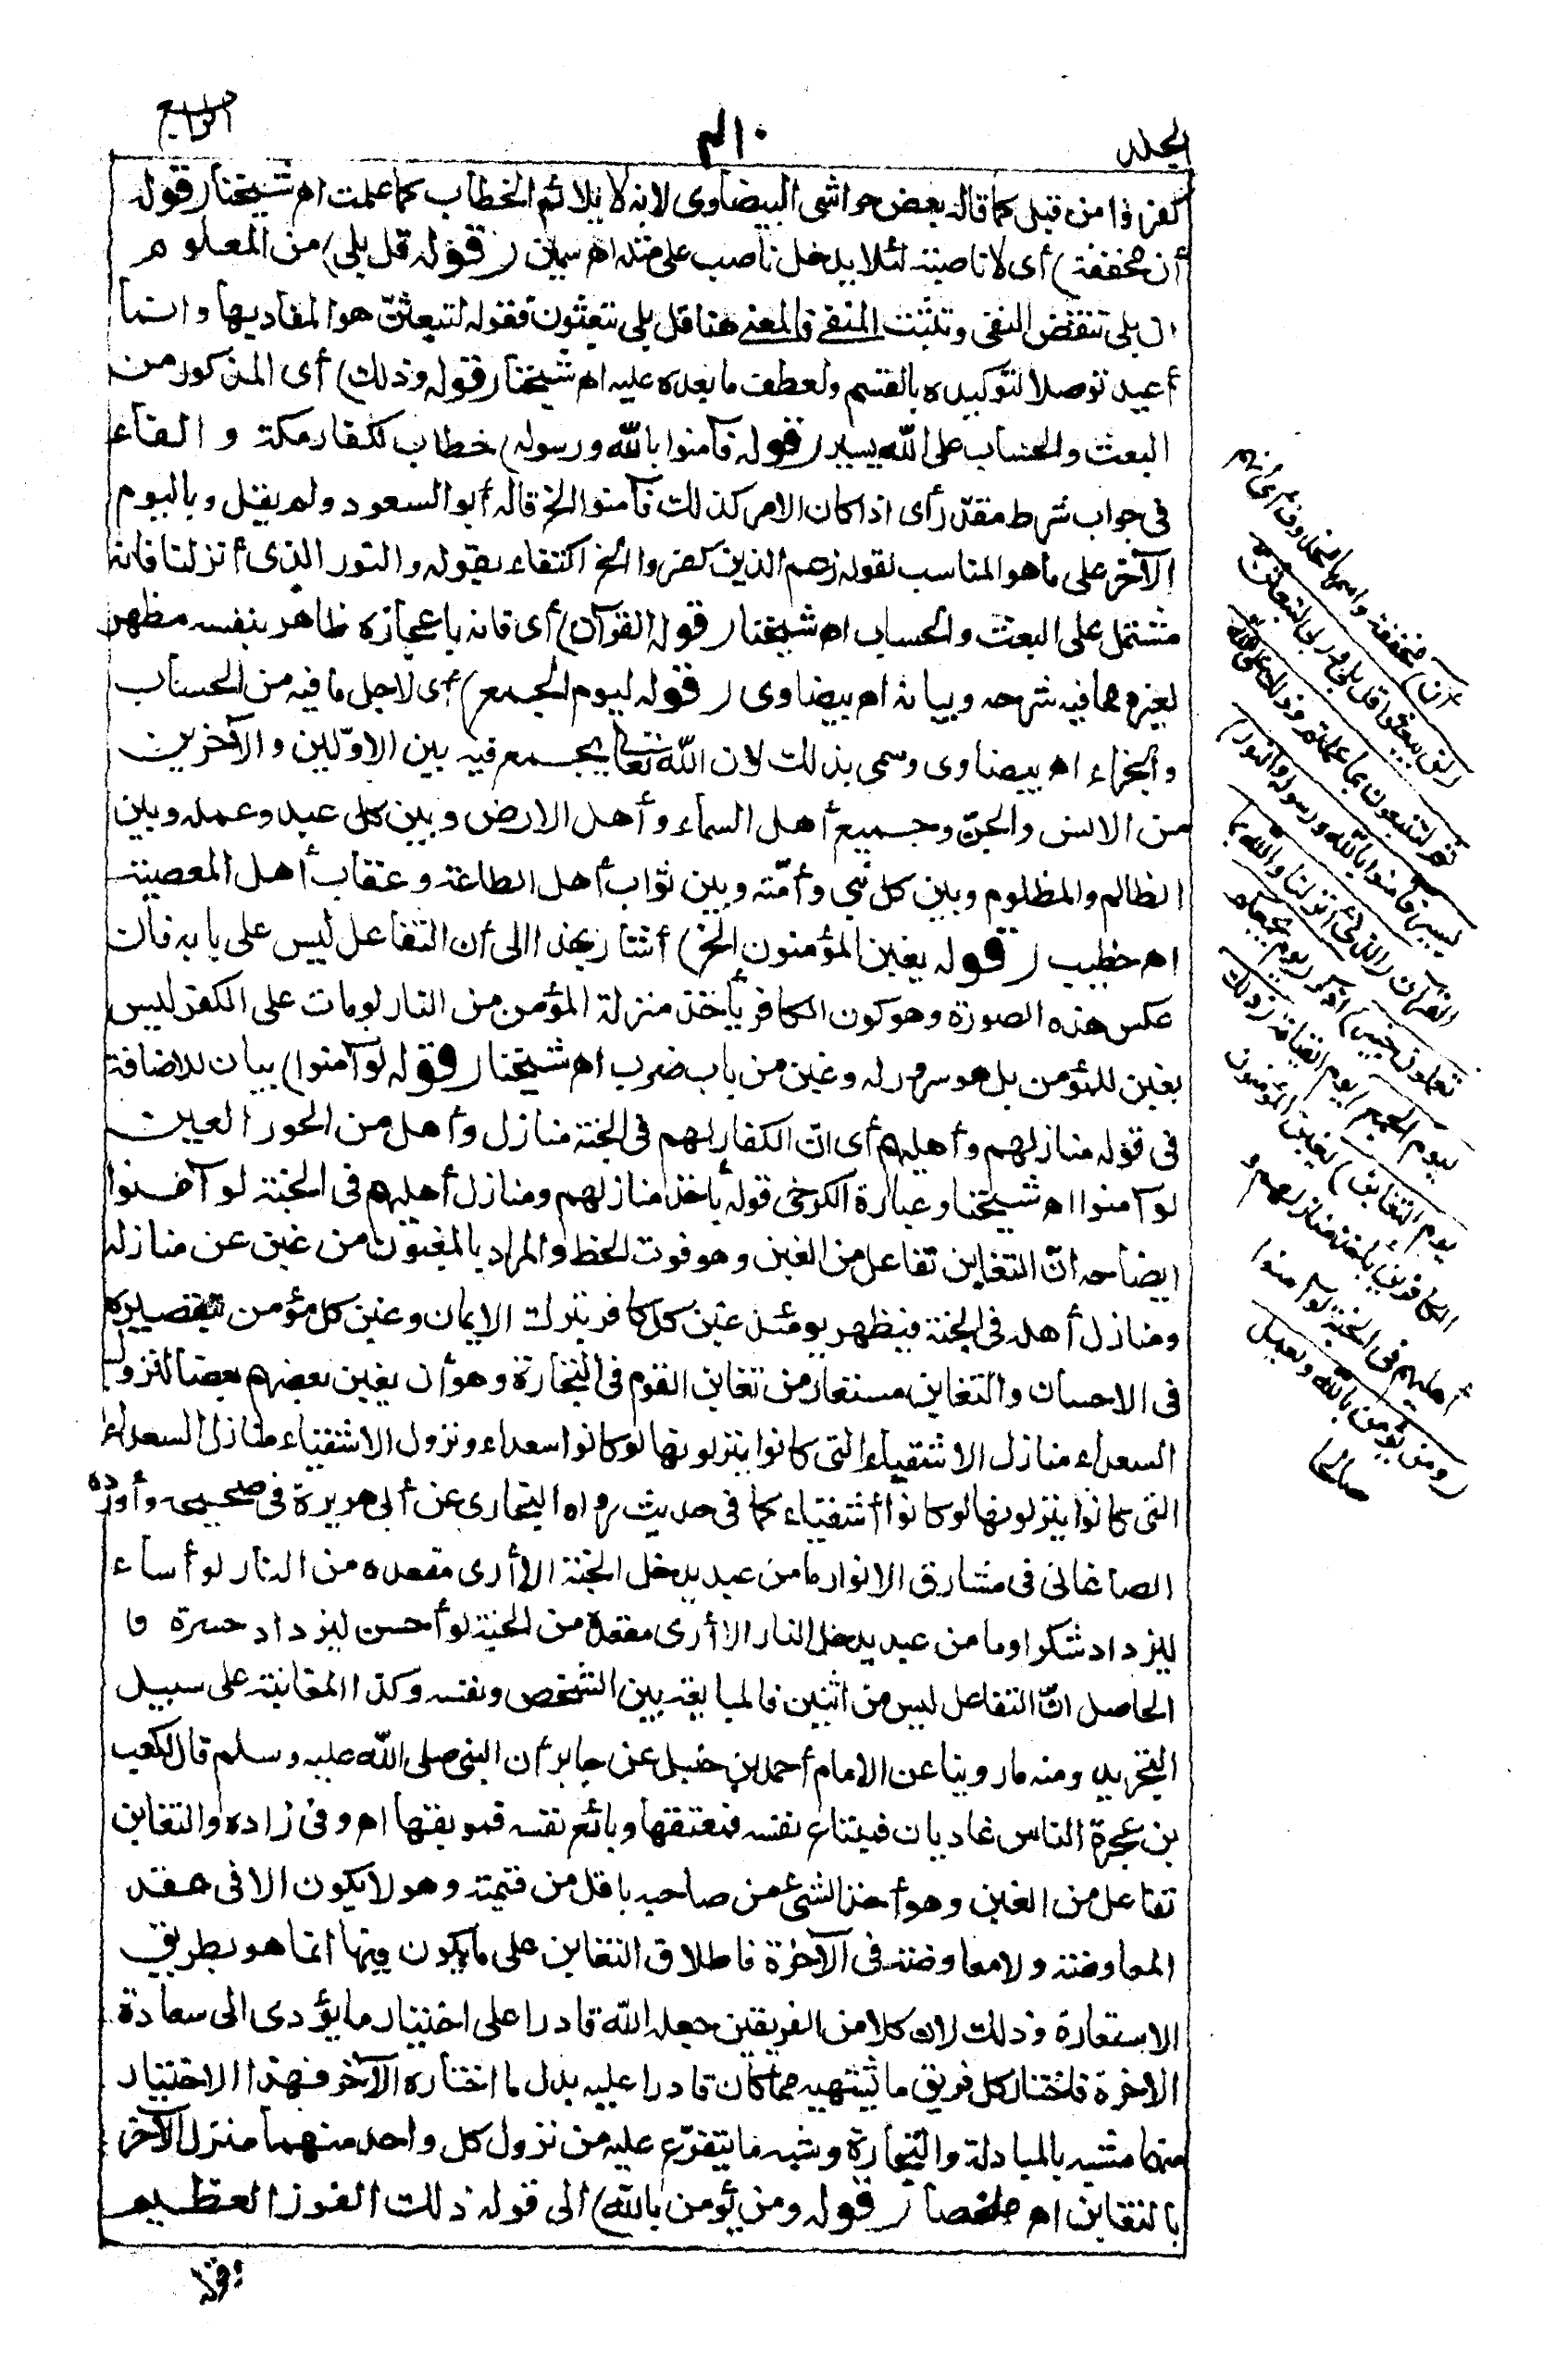 المجلد
الرابع
كفروا من قبل كما قاله بعض حواشى البيضاوى لانه لا يلائم الخطاب كما علمت اه شيخنا (قوله
أن مخففة) أى لا ناصبة لئلا يدخل ناصب على مثله اه سمين (قوله قل بلى) من المعلوم
ان بلى تنقض النفى وتثبت المنفى فالمعنى هنا قل بلى تبعثون فقوله لتبعثنّ هو المفاد بها وانما
أعيد توصلا لتوكيده بالقسم ولعطف ما بعده عليه اه شيخنا (قوله وذلك) أى المذكور من
البعث والحساب على الله يسير (قوله فآمنوا بالله ورسوله) خطاب لكفار مكة والفاء
فى جواب شرط مقدّر أى اذا كان الامر كذلك فآمنوا الخ قاله أبو السعود ولم يقل وباليوم
الآخر على ما هو المناسب لقوله زعم الذين كفروا الخ اكتفاء بقوله والنور الذى أنزلنا فانه
مشتمل على البعث والحساب اه شيخنا (قوله القرآن) أى فانه باعجازه ظاهر بنفسه مظهر
لغيره مما فيه شرحه وبيانه اه بيضاوى (قوله ليوم الجمع) أى لاجل ما فيه من الحساب
والجزاء اه بيضاوى وسمى بذلك لان الله تعالى يجمع فيه بين الاوّلين والآخرين
من الانس والجنّ وجميع أهل السماء وأهل الارض وبين كل عبد وعمله وبين
الظالم والمظلوم وبين كل نبي وأمّته وبين ثواب أهل الطاعة وعقاب أهل المعصية
اه خطيب (قوله يغبن المؤمنون الخ) أشار بهذا الى أن التفاعل ليس على بابه فان
عكس هذه الصورة وهو كون الكافر يأخذ منزلة المؤمن من النار لو مات على الكفر ليس
بغبن للمؤمن بل هو سرور له وغبن من باب ضرب اه شيخنا (قوله لو آمنوا) بيان للاضافة
فى قوله منازلهم وأهليهم أى انّ الكفار لهم فى الجنة منازل وأهل من الحور العين
لو آمنوا اه شيخنا وعبارة الكرخى قوله بأخذ منازلهم ومنازل أهليهم فى الجنة لو آمنوا
ايضاحه انّ التغابن تفاعل من الغبن وهو فوت الحظ والمراد بالمغبون من غبن عن منازله
ومنازل أهله فى الجنة فيظهر يومئذ غبن كل كافر بترك الايمان وغبن كل مؤمن بتقصيره
فى الاحسان والتغابن مستعار من تغابن القوم فى التجارة وهو أن يغبن بعضهم بعضا لنزول
السعداء منازل الاشقياء التى كانوا ينزلونها لو كانوا سعداء ونزول الاشقياء منازل السعداء
التى كانوا ينزلونها لو كانوا أشقياء كما فى حديث رواه البخارى عن أبى هريرة فى صحيحه وأورده
الصاغانى فى مشارق الانوار ما من عبد يدخل الجنة الا أرى مقعده من النار لو أساء
ليزداد شكرا وما من عبد يدخل النار الا أرى مقعده من الجنة لو أحسن ليزداد حسرة و
الحاصل انّ التفاعل ليس من اثنين فالمبايعة بين الشخص ونفسه وكذا المغابنة على سبيل
التجريد ومنه ما روينا عن الامام أحمد بن حنبل عن جابر أن النبى صلى الله عليه وسلم قال لكعب
بن عجرة الناس غاديان فمبتاع نفسه فمعتقها وبائع نفسه فموبقها اه وفى زاده والتغابن
تفاعل من الغبن وهو أخذ الشئ من صاحبه باقل من قيمته وهو لا يكون الا فى عقد
المعاوضة ولا معاوضة فى الآخرة فاطلاق التغابن على ما يكون فيها انما هو بطريق
الاستعارة وذلك لان كلا من الفريقين جعله الله قادرا على اختيار ما يؤدى الى سعادة
الاخرة فاختار كل فريق ما يشتهيه مما كان قادرا عليه بدل ما اختاره الآخر فهذا الاختيار
منهما مشبه بالمبادلة والتجارة وشبه ما يتفرّع عليه من نزول كل واحد منهما منزل الآخر
بالتغابن اه ملخصا (قوله ومن يؤمن بالله) الى قوله ذلك الفوز العظيم
(أن) مخففة واسمها محذوف أى أنهم
(لن يبعثوا قل بلى وربى لتبعثن
ثم لتنبؤن بما عملتم وذلك على الله
يسير فآمنوا بالله ورسوله والنور)
القرآن (الذى أنزلنا والله بما
تعملون خبير) اذكر (يوم يجمعكم
ليوم الجمع) يوم القيامة (ذلك
يوم التغابن) يغبن المؤمنون
الكافرين بأخذ منازلهم و
أهليهم فى الجنة لو آمنوا
(ومن يؤمن بالله ويعمل
صالحا